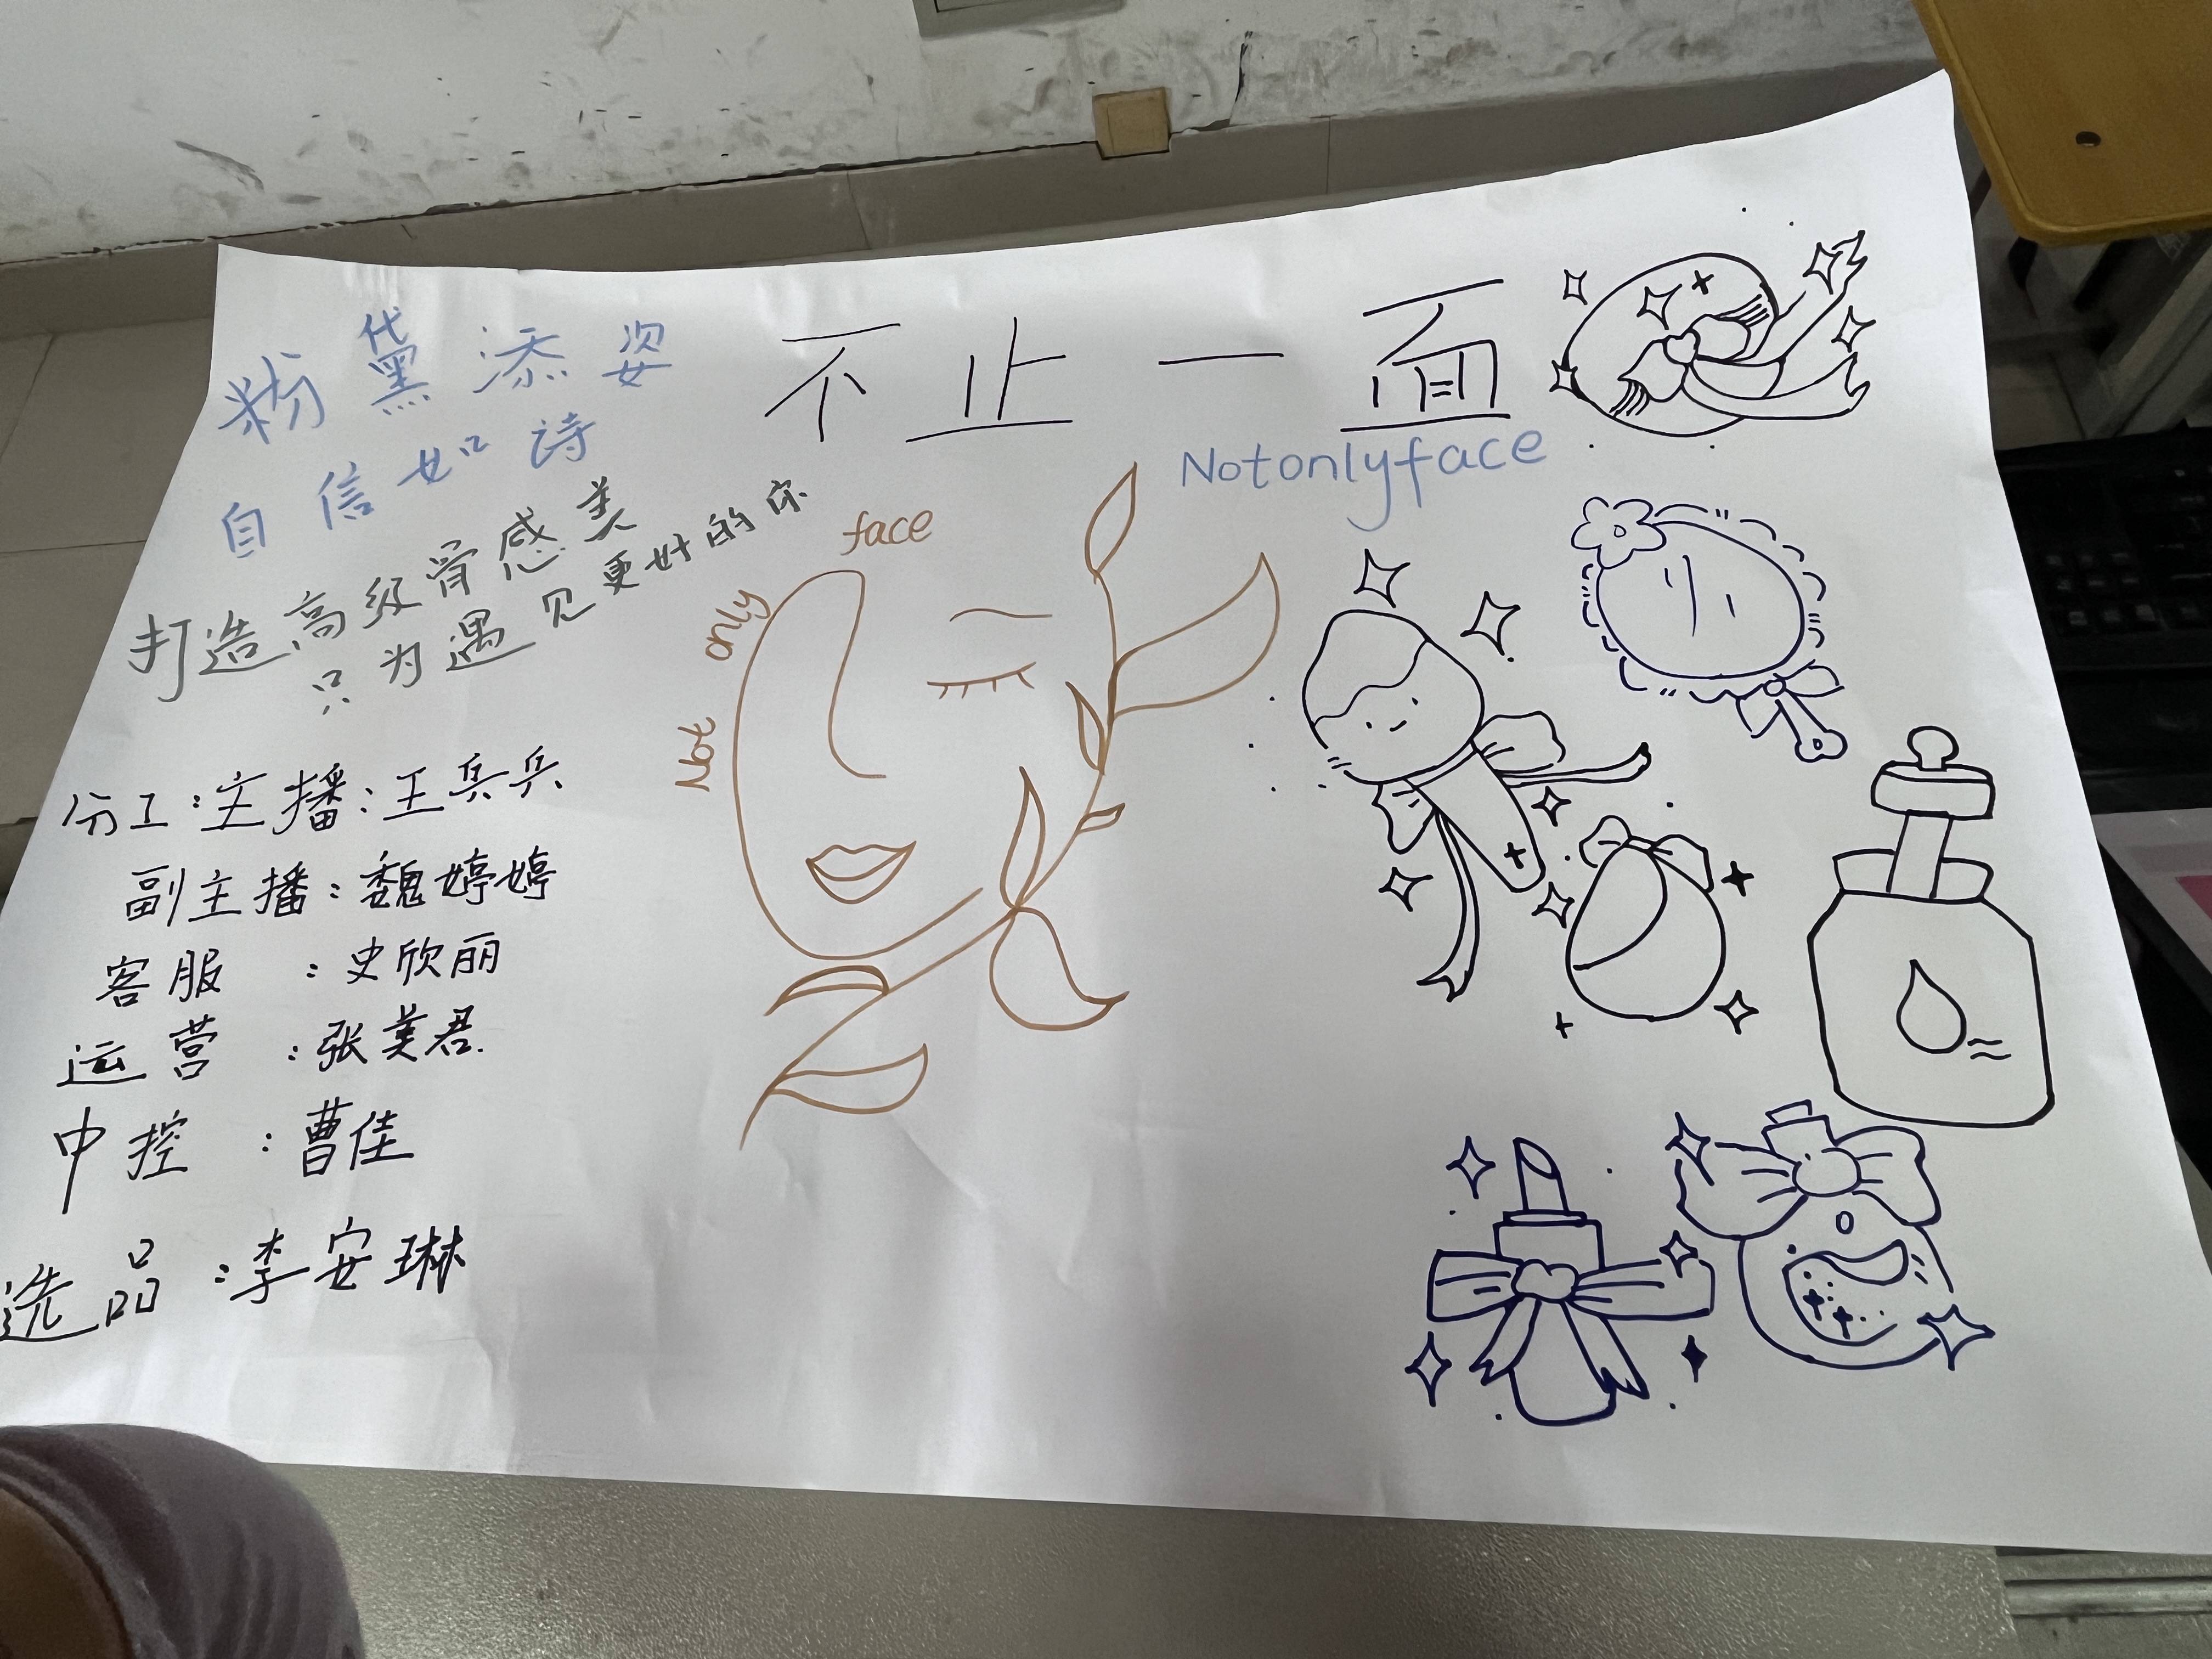 粉黛添姿
自信如诗
打造高级骨感美
只为遇见更好的你
不止一面
Notonlyface
Not only face
分工:主播:王兵兵
副主播:魏婷婷
客服:史欣丽
运营:张美君
中控:曹佳
选品:李安琳